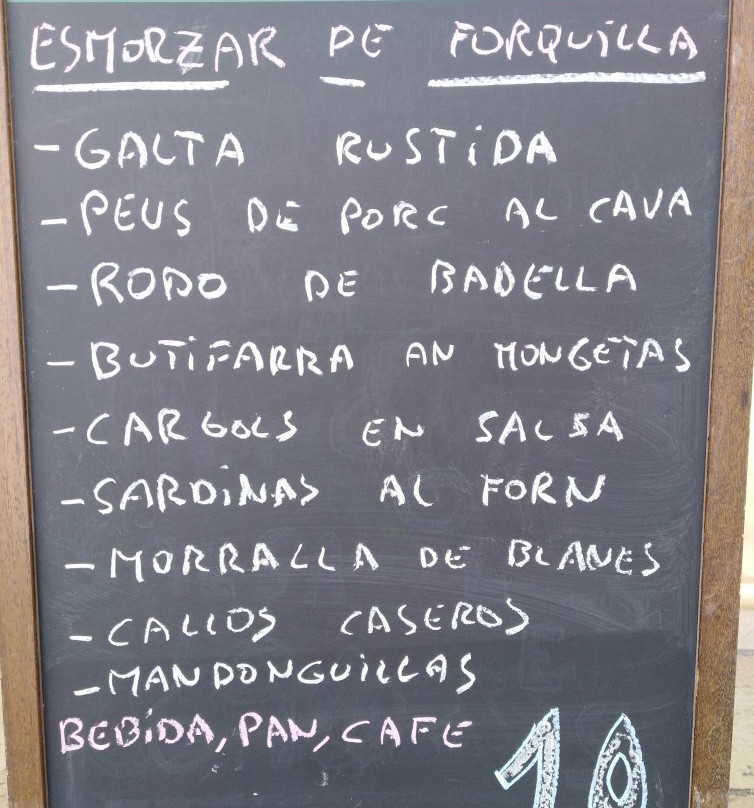 ESMORZAR DE FORQUiLLA
- GALTA RUSTiDA
- PEUS DE PORC AL CAVA
- RODO DE BADELLA
- BUTiFARRA AN MONGETAS
- CARGOLS EN SALSA
- SARDiNAS AL FORN
- MORRALLA DE BLANES
- CALLOS CASEROS
- MANDONGUiLLAS
BEBiDA, PAN, CAFE
10